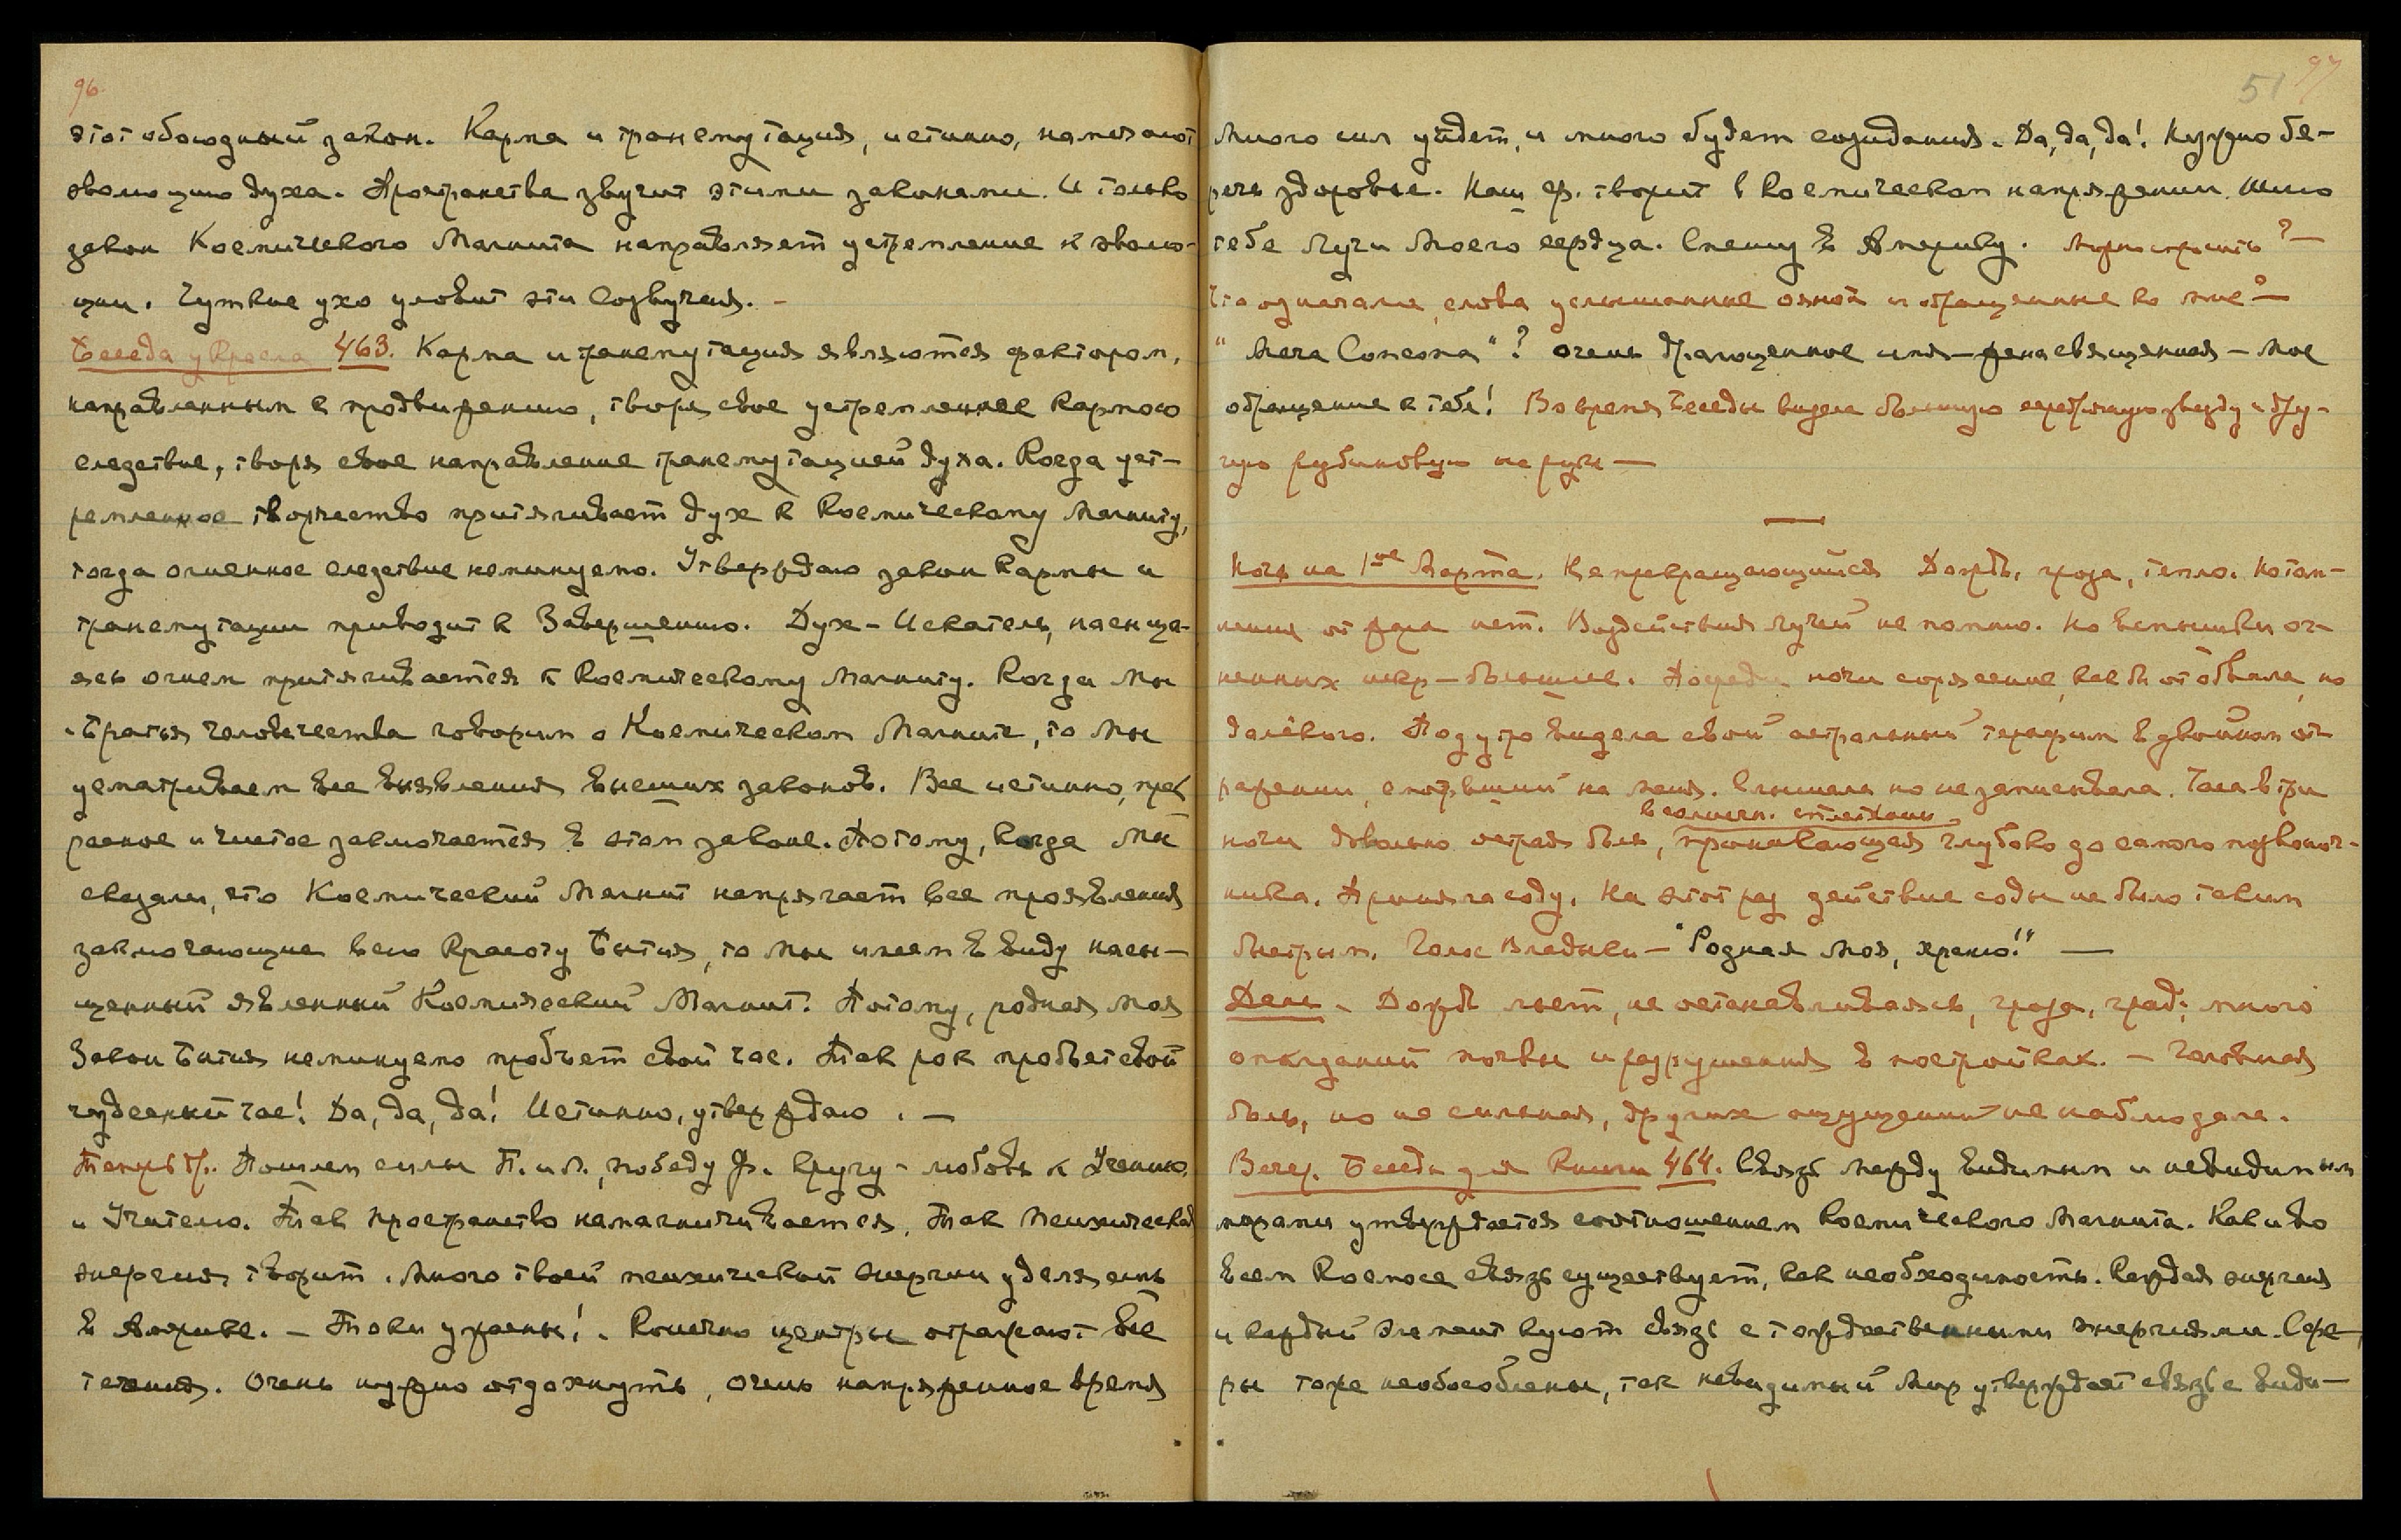 96.
этот обоюдный закон. Карма и трансмутация, истинно, намечают
эволюцию духа. Пространство звучит этими законами. И только
закон Космического Магнита направляет устремление к эволю-
ции. Чуткое ухо уловит эти Созвучия. –
Беседа у Кресла 463. Карма и трансмутация являются фактором,
направленным к продвижению, творя свое устремленное Кармою
следствие, творя свое направление трансмутацией духа. Когда уст-
ремленное творчество притягивает дух к Космическому Магниту,
тогда огненное следствие неминуемо. Утверждаю закон Кармы и
трансмутации приводит к Завершению. Дух-Искатель, насыща-
ясь огнем притягивается к Космическому Магниту. Когда Мы
-Братья Человечества говорим о Космическом Магните, то Мы
усматриваем все выявления высших законов. Все истинно, прек
расное и чистое заключается в этом законе. Потому, когда Мы
сказали, что Космический Магнит напрягает все проявления
заключающие всю Красоту Бытия, то Мы имеем в виду насы-
щенный явленный Космический Магнит. Потому, родная моя
Закон Бытия неминуемо пробьет свой час. Так рок пробьет свой
чудесный час! Да, да, да! Истинно, утверждаю. –
Теперь Др. Пошлем силы П. и Л., победу Ф. Кругу - любовь к Учению
и Учителю. Так пространство намагничивается, Так психическая
энергия творит. Много твоей психической энергии уделяешь
в Америке. – Токи ужасны! . Конечно центры отражают все
течения. Очень нужно отдохнуть, очень напряженное время
51 97
Много сил уйдет, и много будет созидания. Да, да, да! Нужно бе-
речь здоровье. Наш Ф. творит в Космическом напряжении. Шлю
тебе Лучи Моего сердца. Спешу в Америку. Можно спросить? –
Что означали слова услышанные мной и обращенные ко мне? –
"Мега Сонсома"? Очень драгоценное имя – жена священная – Мое
обращение к тебе! Во время Беседы видела большую серебряную звезду и дру-
гую рубиновую на руке –
Ночь на 1ое Марта. Непрекращающийся Дождь, гроза, тепло. Но топ-
ление от жара нет. Воздействия Лучей не помню. Но вспышки ог-
ненных искр – большие. Посреди ночи сотрясение, как бы от обвала, но
далёкого. Под утро видела свой астральный терафим в двойном от-
ражении, смотревший на меня. Слышала но не записывала. Часа в три
в солнечн. сплетении
ночи довольно острая боль, проникающая глубоко до самого позвоноч-
ника. Приняла соду. На этот раз действие соды не было таким
быстрым. Голос Владыки – "Родная моя, храню!" –
День – Дождь льет, не останавливаясь, гроза, град; много
опаданий почвы и разрушения в постройках. – Головная
боль, но не сильная, других ощущений не наблюдала.
Вечер. Беседа для Книги 464. Связь между видимым и невидимым
мирами утверждается соотношением Космического Магнита. Как и во
всем Космосе связь существует, как необходимость. Каждая энергия
и каждый элемент куют связь с тождественными энергиями. Сфе-
ры тоже необособлены, так невидимый Мир утверждает связь с види-